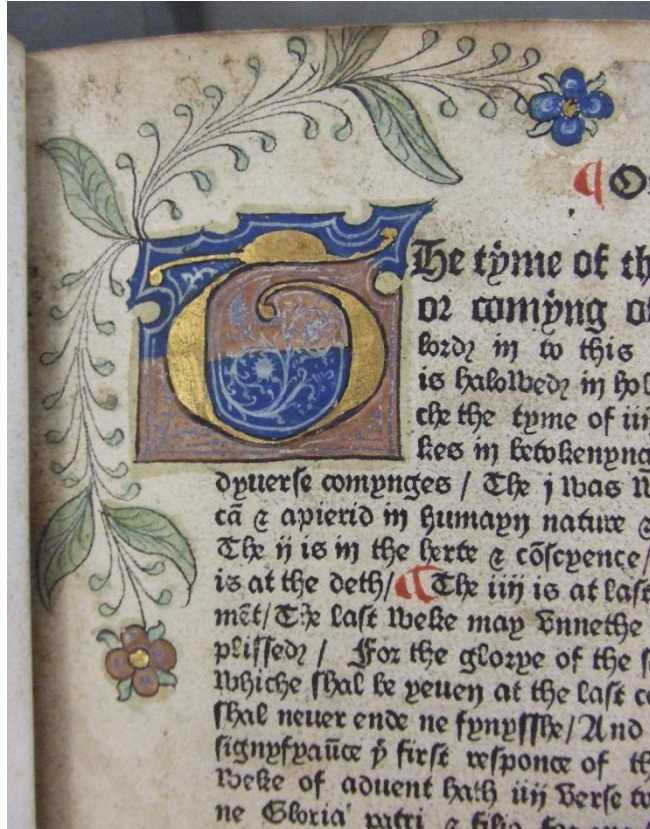 ¶ O
The tyme of th
or comyng o
lord in to this
is halowed in hol
che the tyme of iii
kes in betokenyng
dyuerse comynges / The j was w
cā ⁊ apierid in humayn nature ⁊
The ij is in the herte ⁊ cōscyence/
is at the deth/ ¶ The iiij is at last
mēt/ The last weke may vnnethe
plissed / For the glorye of the s
whiche shal be yeuen at the last co
shal neuer ende ne fynysshe/ And
signyfyaūce yͤ first responce of th
weke of aduent hath iiij verse to
ne Gloria patri ⁊ filio for